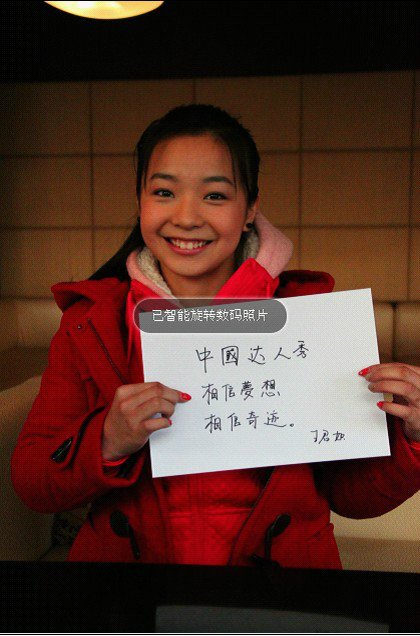 已智能旋转数码照片
中國达人秀
相信夢想
相信奇迹。